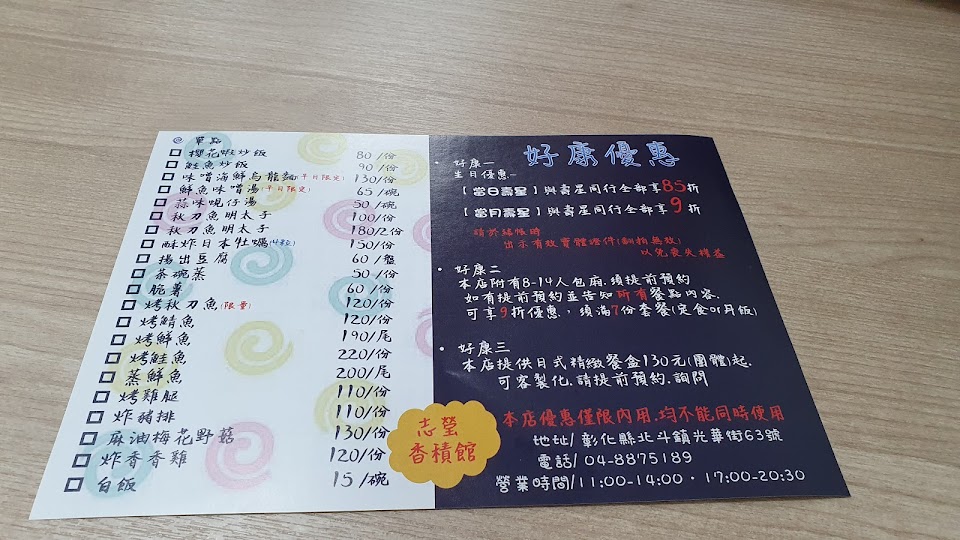 單點
櫻花蝦炒飯 80/份
鮭魚炒飯 90/份
味噌海鮮烏龍麵(平日限定) 130/份
鮮魚味噌湯(平日限定) 65/碗
蒜味蜆仔湯 50/碗
秋刀魚明太子 100/份
秋刀魚明太子 180/2份
酥炸日本牡蠣(4顆) 150/份
揚出豆腐 60/盤
茶碗蒸 50/份
脆薯 60/份
烤秋刀魚(限量) 120/份
烤鯖魚 120/份
烤鮮魚 190/尾
烤鮭魚 220/份
蒸鮮魚 200/尾
烤雞腿 110/份
炸豬排 110/份
麻油梅花野菇 130/份
炸香香雞 120/份
白飯 15/碗
好康優惠
• 好康一
生日優惠-
【當日壽星】與壽星同行全部享85折
【當月壽星】與壽星同行全部享9折
請於結帳時
出示有效實體證件(翻拍無效)
以免喪失權益
• 好康二
本店附有8-14人包廂.須提前預約
如有提前預約並告知所有餐點內容.
可享9折優惠，須滿7份套餐(定食or丼飯)
• 好康三
本店提供日式精緻餐盒130元(團體)起.
可客製化.請提前預約.詢問
志瑩
香積館
本店優惠僅限內用.均不能同時使用
地址/彰化縣北斗鎮光華街63號
電話/04-8875189
營業時間/11:00-14:00・17:00-20:30